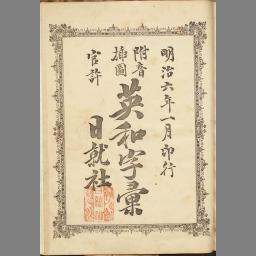 明治六年一月印行
附音
挿圖
英和字彙
官許
日就社